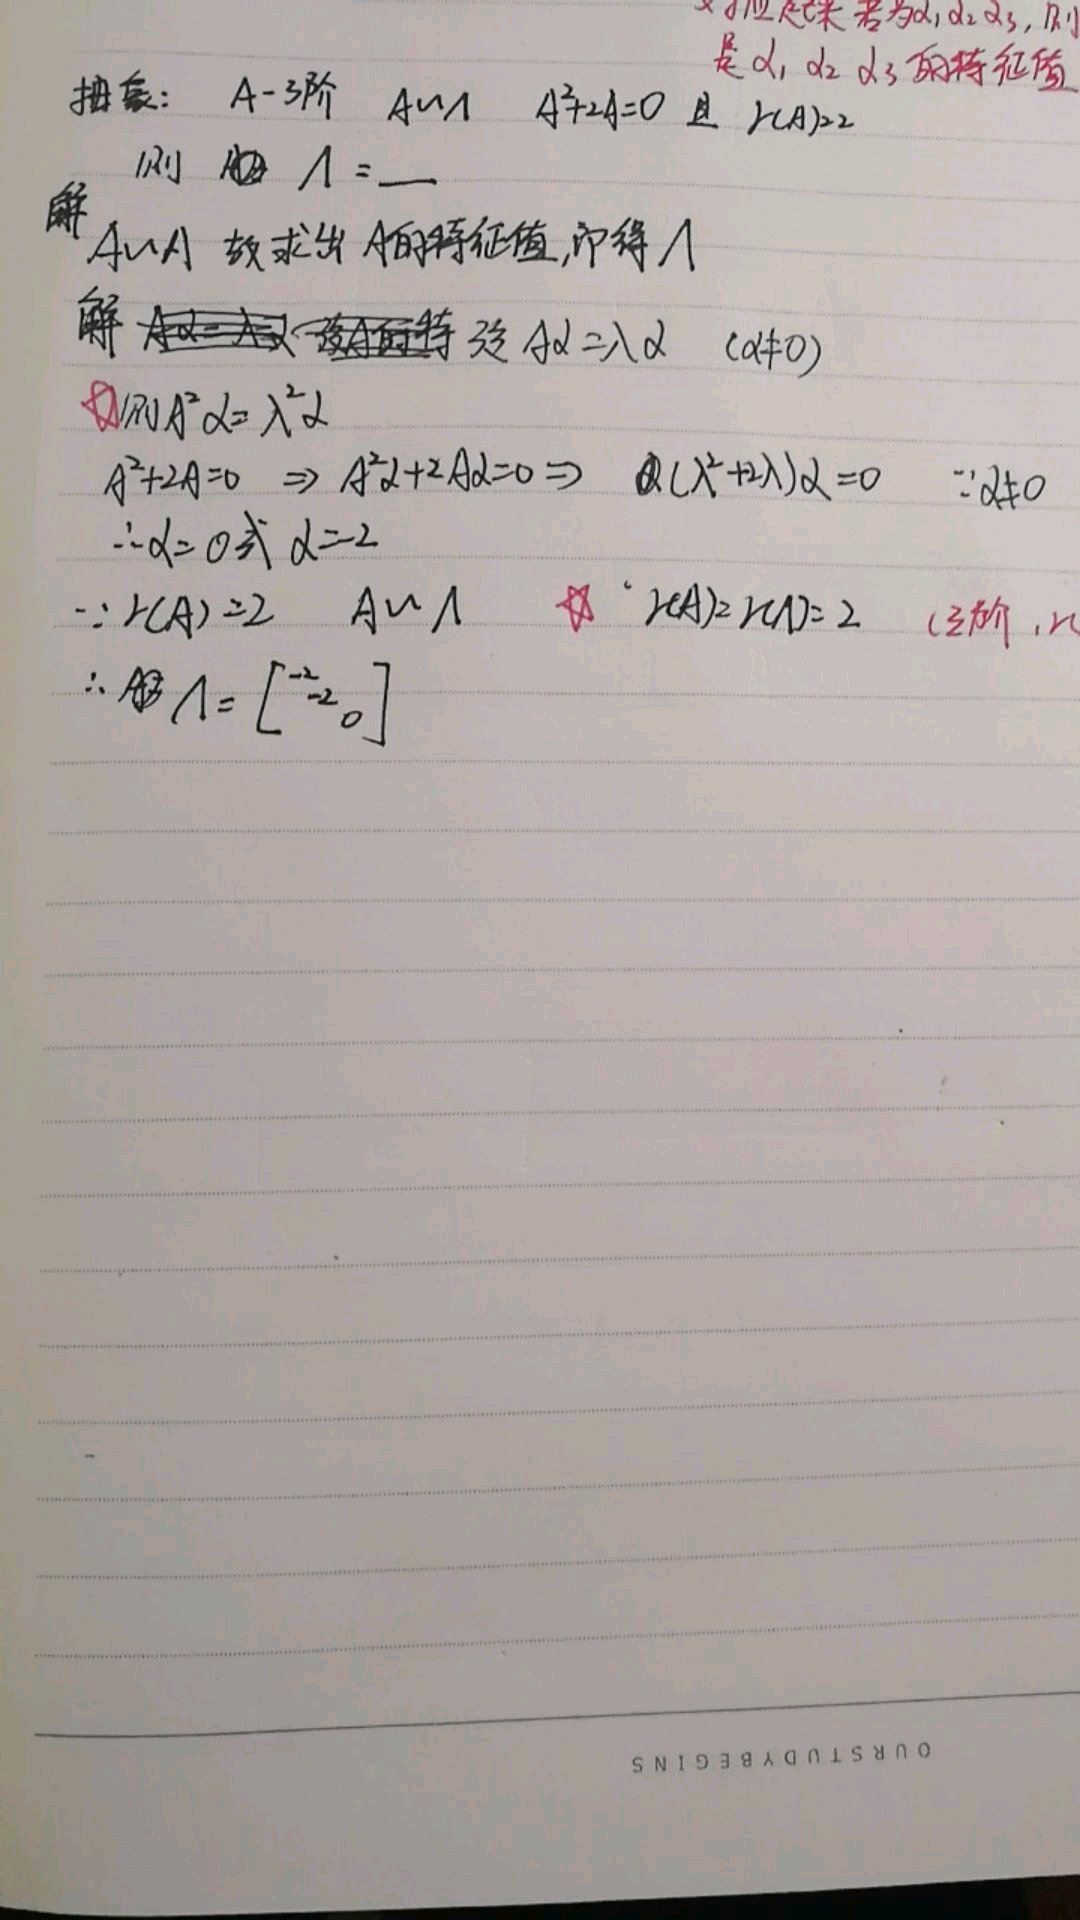 对应起来 若为α₁α₂α₃, 则
是α₁ α₂ α₃的特征值
抽象: A-3阶 A∽Λ A²+2A=0 且 r(A)=2
则 Λ=__
解
A∽Λ 故求出A的特征值,即得Λ
解 设 Aα=λα (α≠0)
☆则A²α=λ²α
A²+2A=0 ⇒ A²α+2Aα=0 ⇒ (λ²+2λ)α=0 ∵α≠0
∴α=0或 α=-2
∵r(A)=2 A∽Λ ☆ r(A)=r(Λ)=2 (三阶, r(
∴ Λ=[-2 -2 0]
OURSTUDYBEGINS